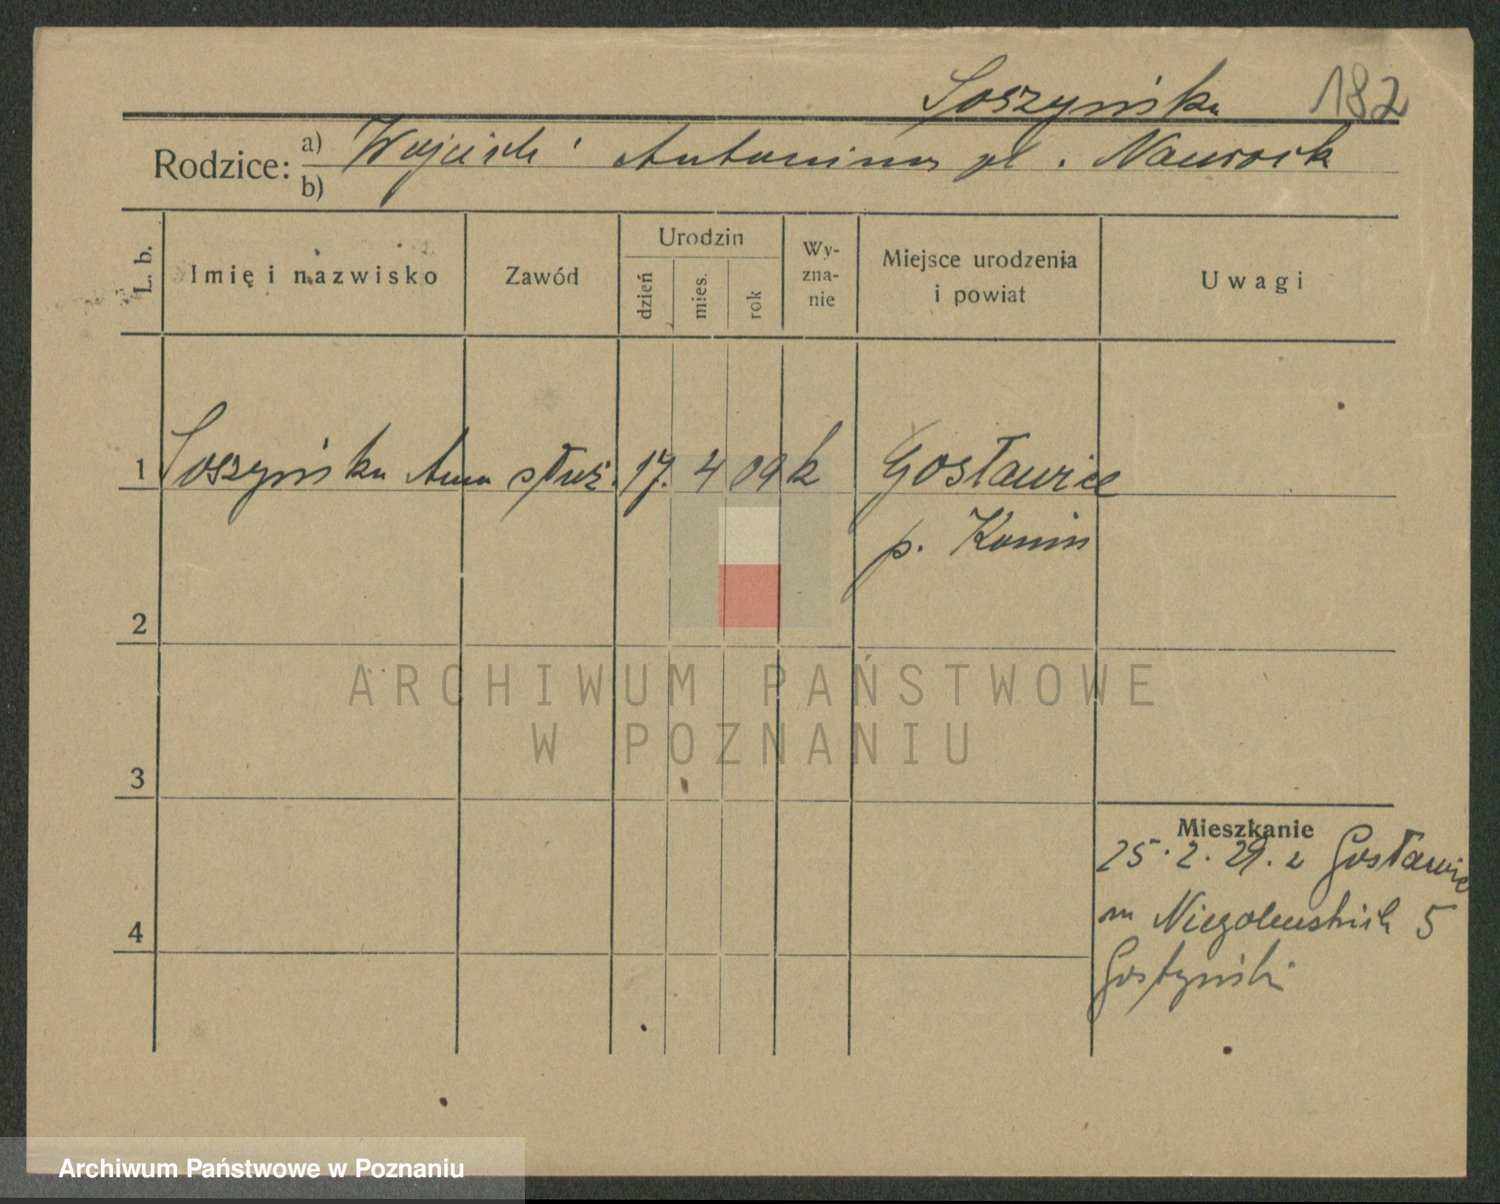 Soszyńska 182
Rodzice: a) Wojciech Antonina
b)
L. b. Imię i nazwisko Zawód Urodzin dzień mies. rok Wy-zna-nie Miejsce urodzenia i powiat Uwagi
1 Soszyńska Anna służ. 17. 4 09 k Gosławice
p. Konin
2
3
4
Mieszkanie
25. 2. 29. z Gosławic
m Niegolewskich 5
Gostyński
ARCHIWUM PAŃSTWOWE
W POZNANIU
Archiwum Państwowe w Poznaniu